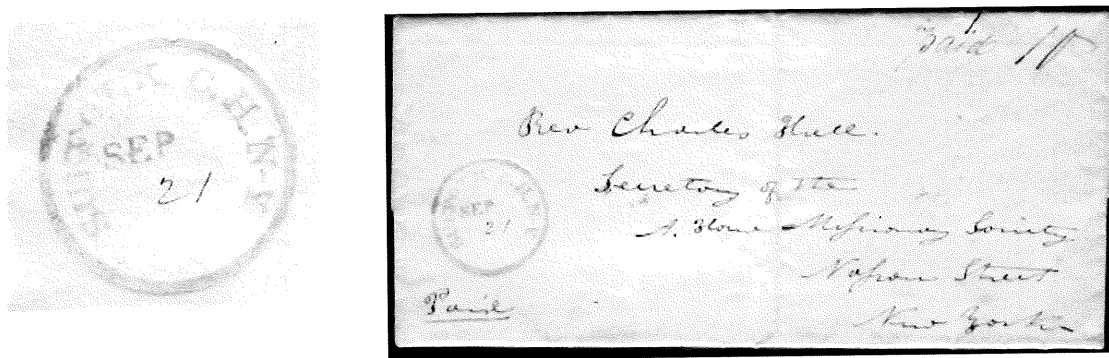 C.H. N-Y
SEP
21
Paid
Rev Charles Hall.
Secretary of the
A. Home Missionary Society
Nassau Street
New York
SEP
21
Paid